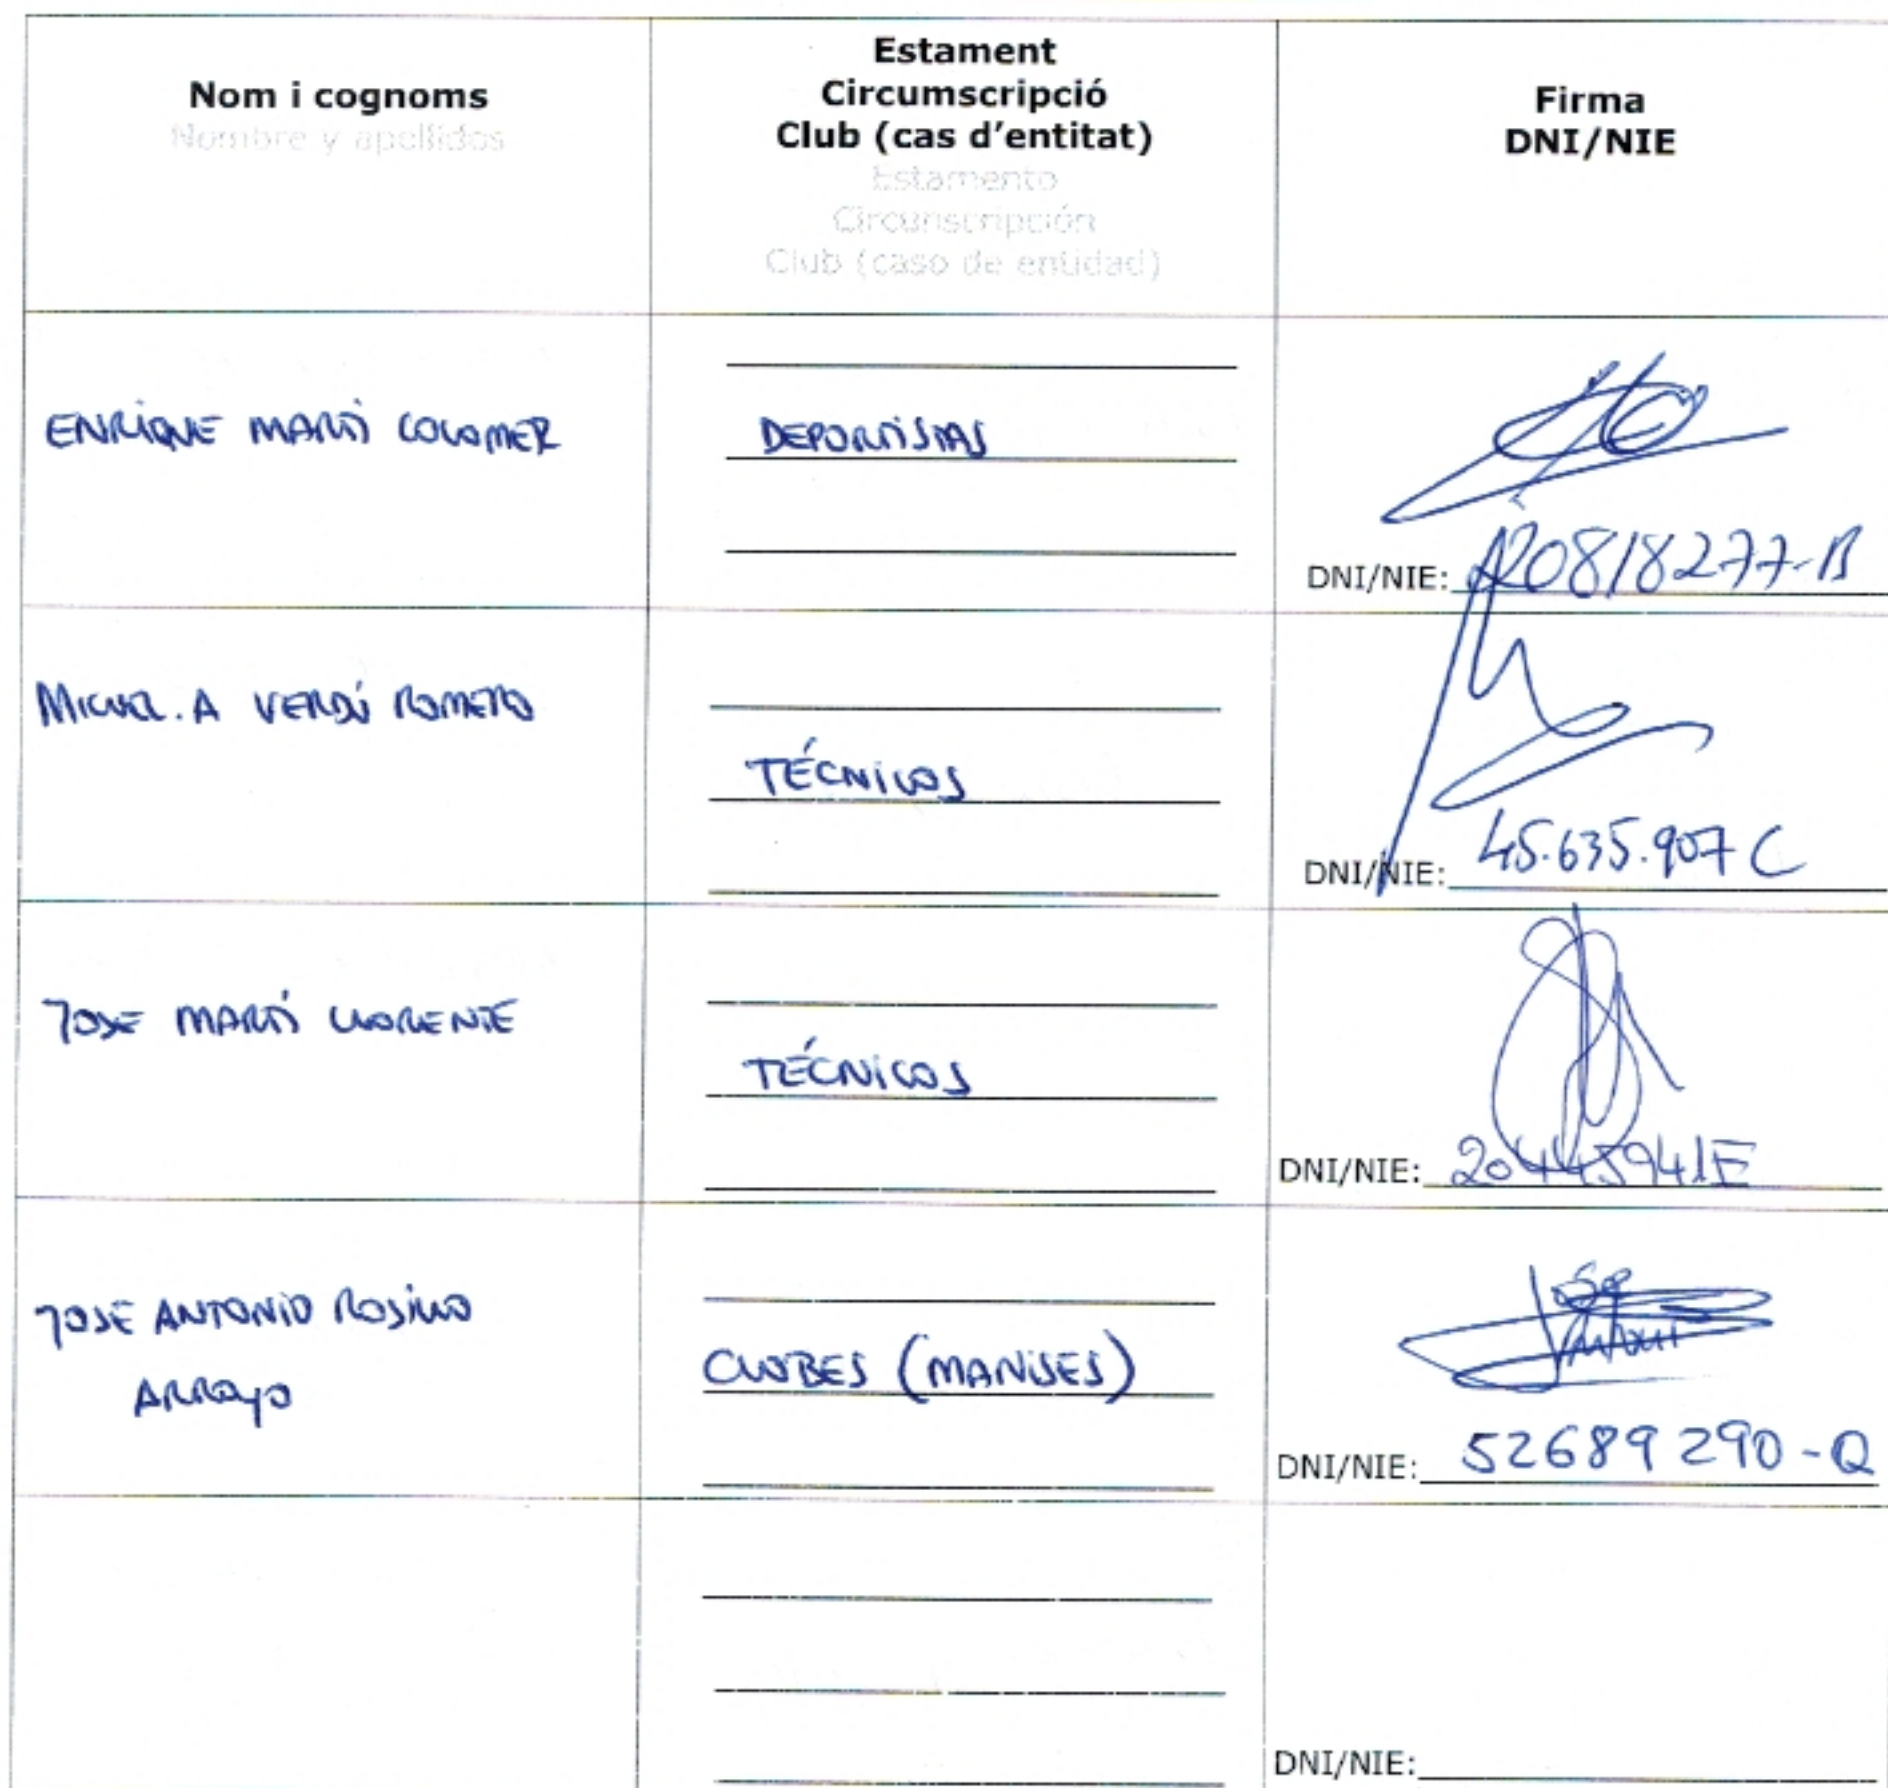 Nom i cognoms
Nombre y apellidos
Estament
Circumscripció
Club (cas d'entitat)
Estamento
Circunscripción
Club (caso de entidad)
Firma
DNI/NIE
ENRIQUE MARTÍ COLOMER
DEPORTISTAS
DNI/NIE: 20818277-B
MIGUEL.A VERDÚ ROMERO
TÉCNICOS
DNI/NIE: 45.635.907 C
JOSE MARTÍ LLORENTE
TÉCNICOS
DNI/NIE: 20445941E
JOSE ANTONIO ROSILLO
ARROYO
CLUBES (MANISES)
DNI/NIE: 52689290-Q
DNI/NIE: